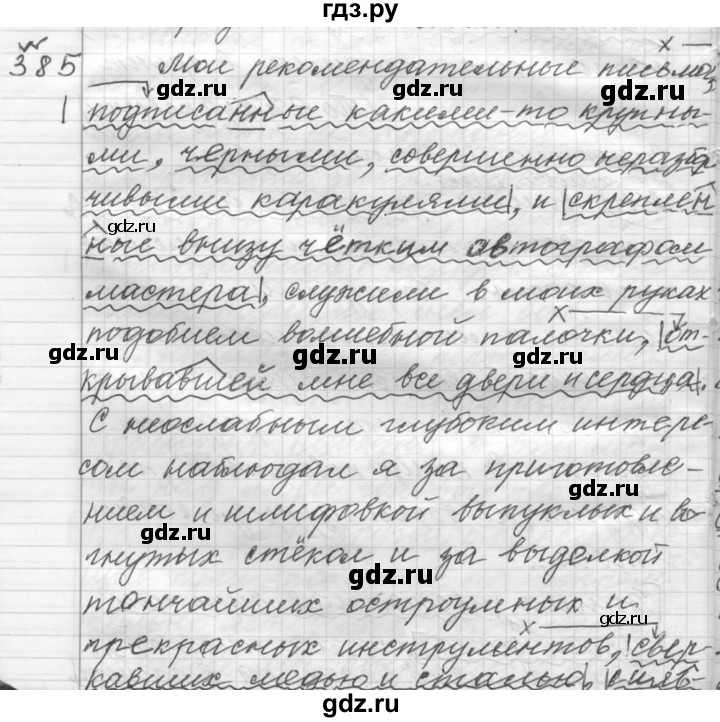 гдз.ру
385 Мои рекомендательные письма,
1 подписанные какими-то крупны-
ми, чёрными, совершенно неразбор
чивыми каракулями, и скреплен
ные внизу чётким автографом
мастера, служили в моих руках
подобием волшебной палочки, от-
крывавшей мне все двери и сердца.
С неослабным глубоким интере-
сом наблюдал я за приготовле-
нием и шлифовкой выпуклых и во
гнутых стёкол и за выделкой
тончайших остроумных и
прекрасных инструментов, свер-
кавших медью и сталью,
gdz.ru
gdz.ru
gdz.ru
gdz.ru
gdz.ru
gdz.ru
gdz.ru
gdz.ru
gdz.ru
gdz.ru
gdz.ru
gdz.ru
gdz.ru